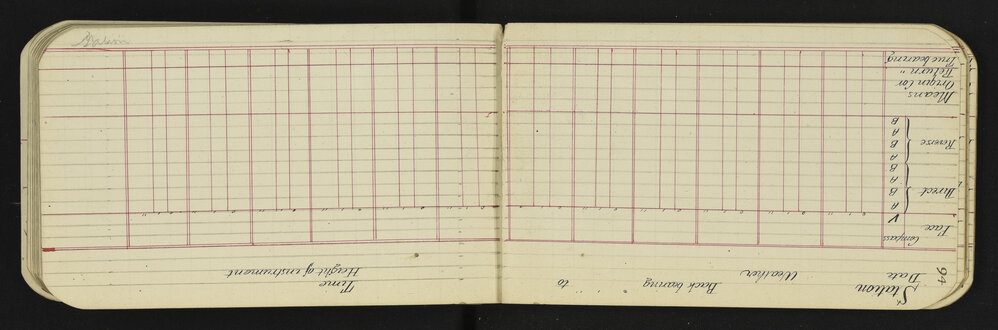 94
Station
Date Weather Back bearing ° ' " to Time
Height of instrument
Compass
Face V
Direct A
B
A
B
Reverse A
B
A
B
Means
Origin Cor
Return "
True bearing
Station